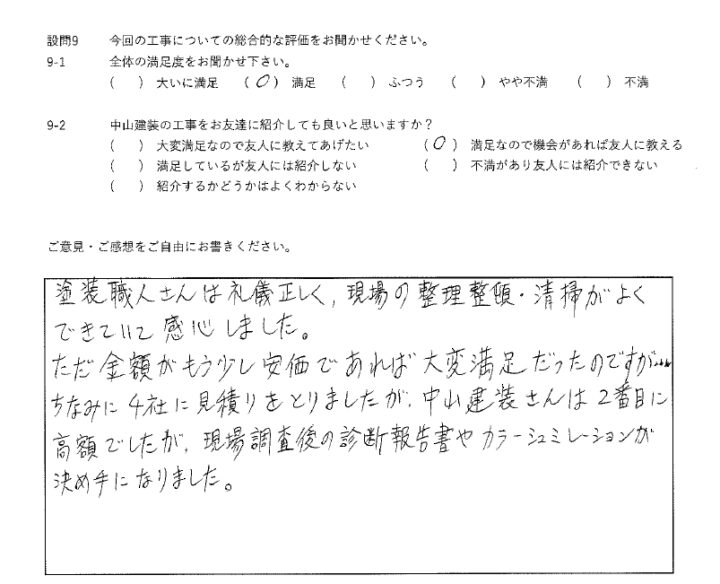 設問9 今回の工事についての総合的な評価をお聞かせください。
9-1 全体の満足度をお聞かせ下さい。
( ) 大いに満足 (○) 満足 ( ) ふつう ( ) やや不満 ( ) 不満
9-2 中山建装の工事をお友達に紹介しても良いと思いますか?
( ) 大変満足なので友人に教えてあげたい (○) 満足なので機会があれば友人に教える
( ) 満足しているが友人には紹介しない ( ) 不満があり友人には紹介できない
( ) 紹介するかどうかはよくわからない
ご意見・ご感想をご自由にお書きください。
塗装職人さんは礼儀正しく、現場の整理整頓・清掃がよく
できていて感心しました。
ただ金額がもう少し安価であれば大変満足だったのですが…
ちなみに4社に見積りをとりましたが、中山建装さんは2番目に
高額でしたが、現場調査後の診断報告書やカラーシュミレーションが
決め手になりました。